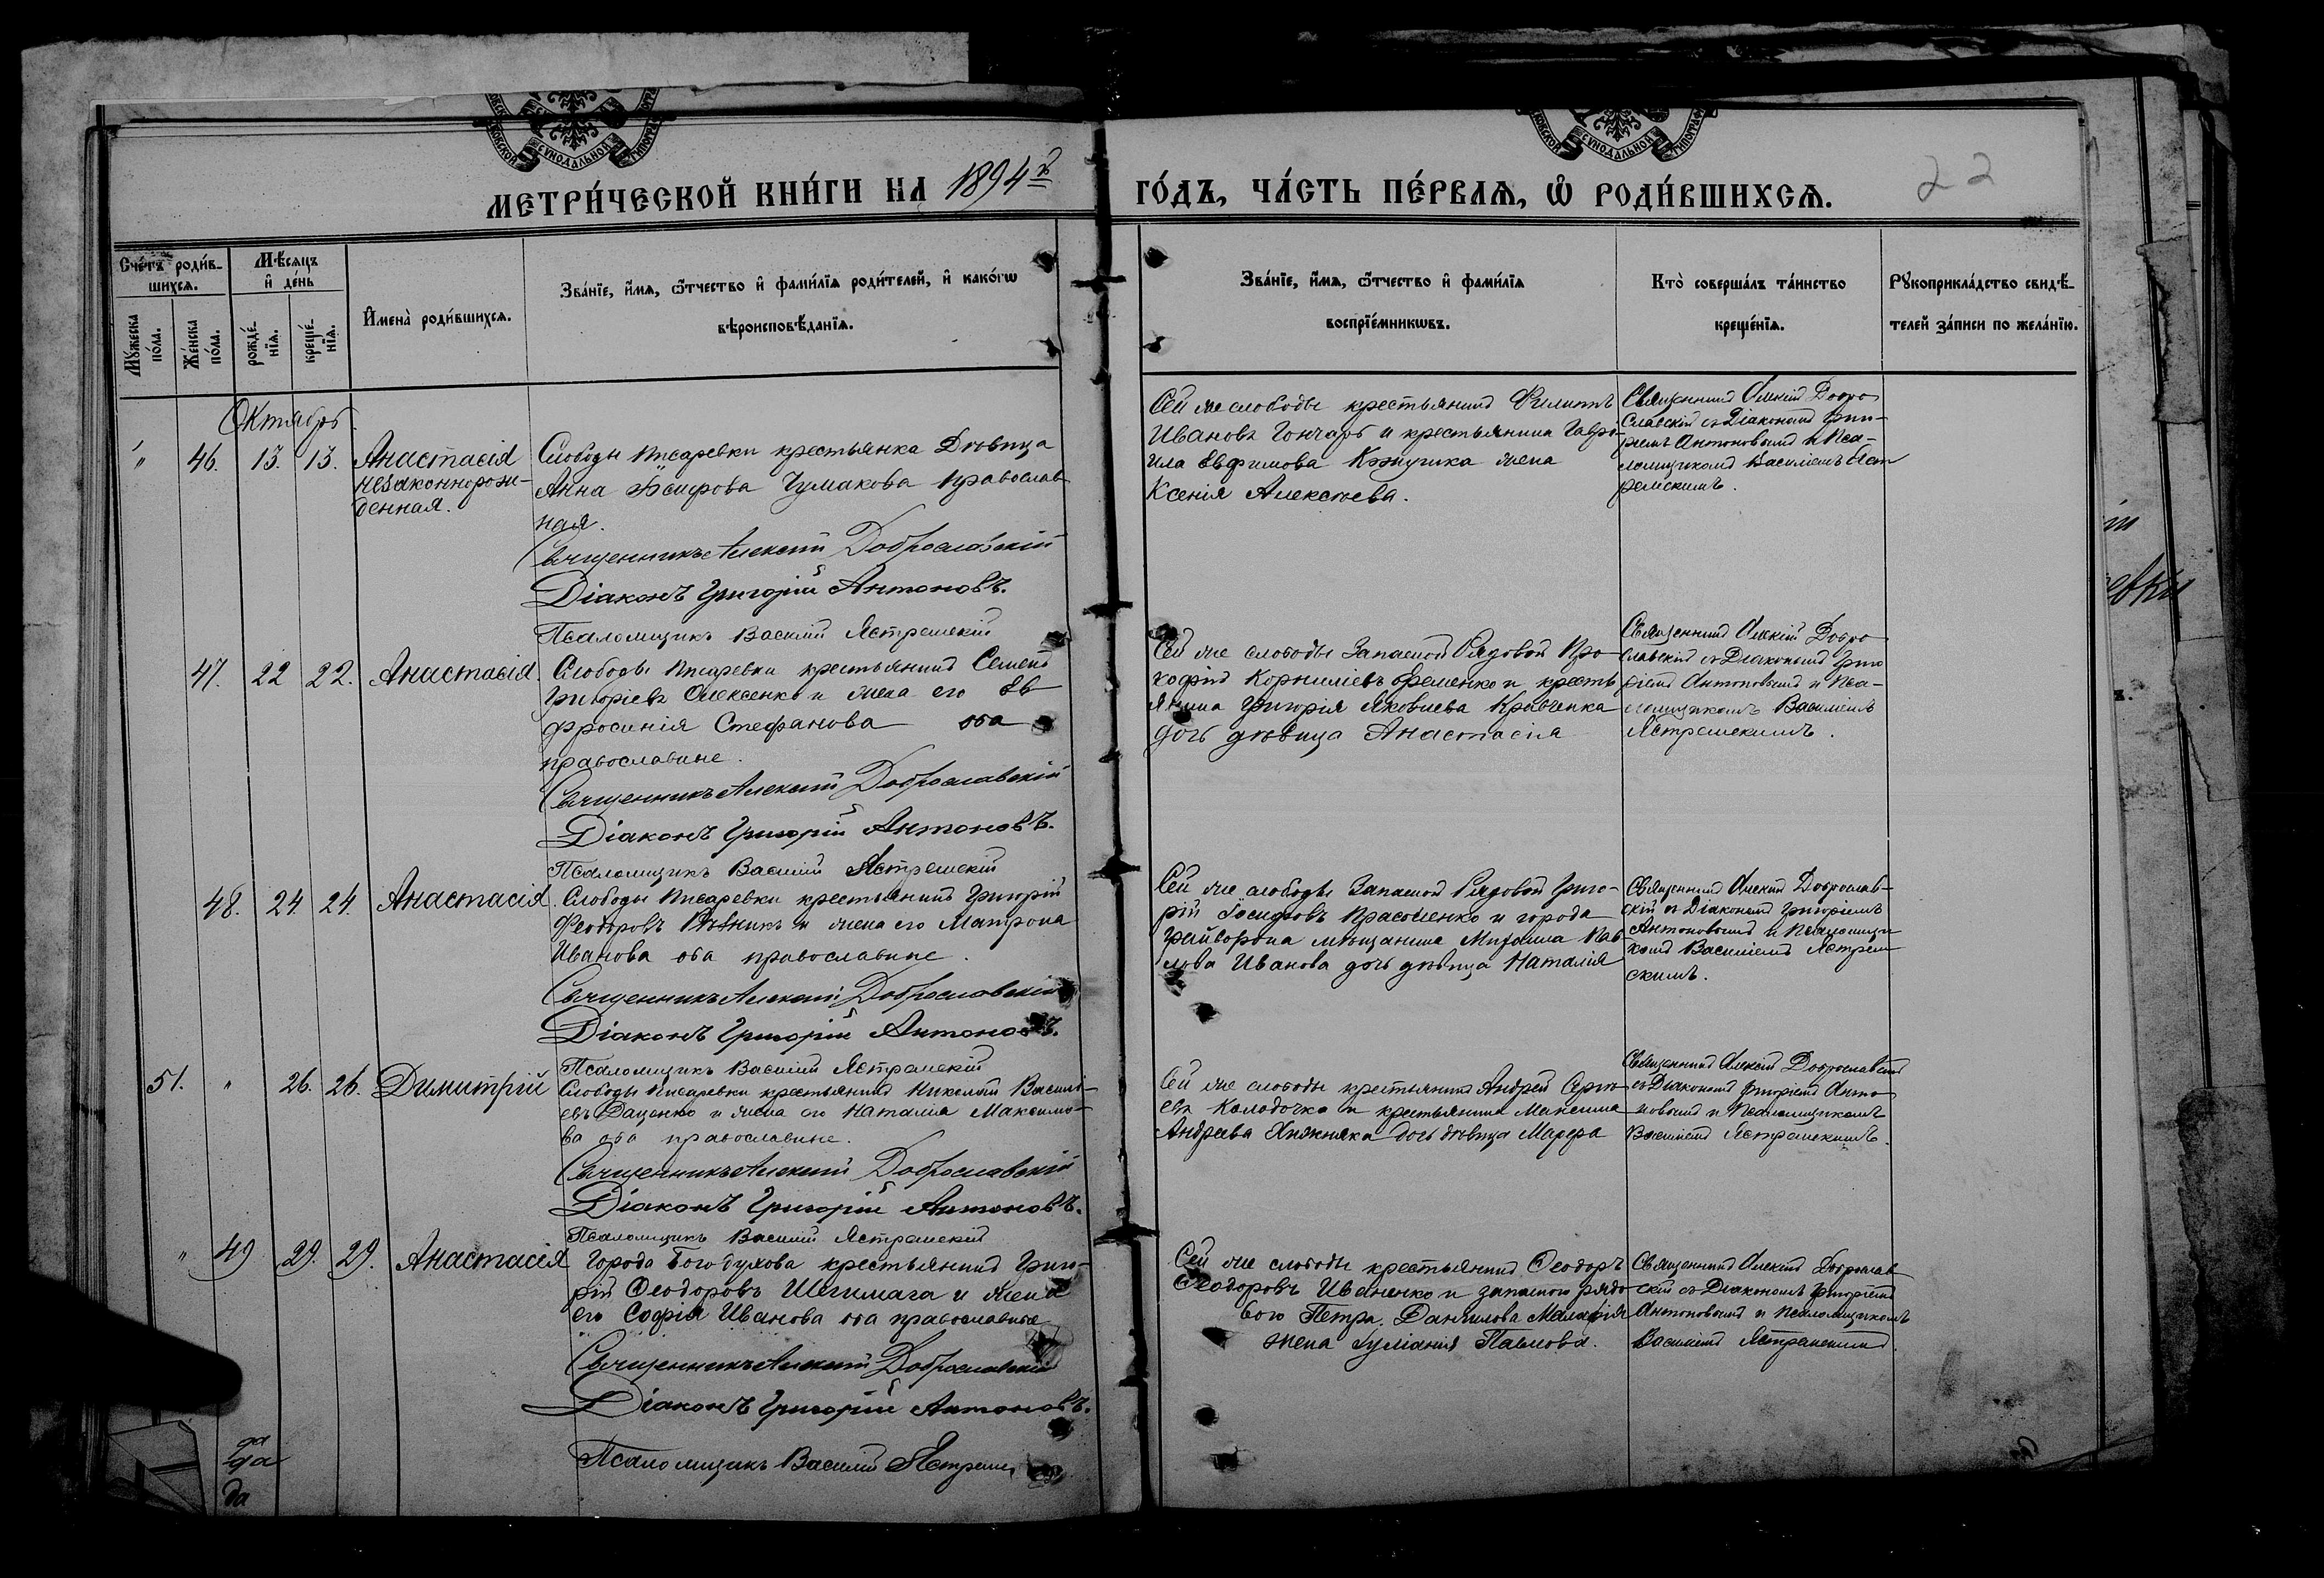 МЕТРИ́ЧЕСКОЙ КНИ́ГИ НА 1894й
ГО́ДЪ, ЧА́СТЬ ПЕ́РВАѦ, Ѡ РОДИ́ВШИХСѦ.
22
Сче́тъ роди́в-
шихсѧ.
Мѣсѧцъ
и де́нь
Мꙋжеска по́ла.
Же́нска по́ла.
рожде́-
нїѧ.
креще́-
нїѧ.
Имена̀ роди́вшихсѧ.
Зва́нїе, и́мѧ, ѻ́тчество и фами́лїѧ роди́телей, и како́гѡ
вѣроисповѣ́данїѧ.
Зва́нїе, и́мѧ, ѻ́тчество и фами́лїѧ
воспрїе́мникѡвъ.
Кто̀ соверша́лъ та́инство
креще́нїѧ.
Рꙋкоприкла́дство свидѣ́-
телей за́писи по жела́нїю.
Октябрь.
" 46. 13. 13. Анастасія
незаконнорож-
денная.
Слободы Писаревки крестьянка Дѣвица
Анна Іосифова Чумакова Православ-
ная.
Священникъ Алексій Доброславскій
Діаконъ Григорій Антоновъ.
Псаломщикъ Василій Ястремскій
Сей же слободы крестьянинъ Филиппъ
Ивановъ Гончаръ и крестьянина Гаврі-
ила Евфимова жена
Ксенія Алексѣева.
Священникъ Алексій Добро
славскій съ Діакономъ Григо-
ріемъ Антоновымъ и Пса-
ломщикомъ Василіемъ Яст
ремскимъ.
47. 22 22. Анастасія.
Слободы Писаревки крестьянинъ Семенъ
Григорьевъ Олексенко и жена его Ев-
фросинія Стефанова оба
православные.
Священникъ Алексій Доброславскій
Діаконъ Григорій Антоновъ.
Псаломщикъ Василій Ястремскій
Сей же слободы Запасной Рядовой Про-
кофій Корниліевъ Еременко и кресть
янина Григорія Яковлева Кравченка
дочь дѣвица Анастасія
Священникъ Алексій Добро
славскій съ Діакономъ Григо
ріемъ Антоновымъ и Пса-
ломщикомъ Василіемъ
Ястремскимъ.
48. 24. 24. Анастасія.
Слободы Писаревки крестьянинъ Григорій
Ѳеодоровъ и жена его Матрона
Иванова оба православные.
Священникъ Алексій Доброславскій
Діаконъ Григорій Антоновъ.
Псаломщикъ Василій Ястремскій
Сей же слободы Запасной Рядовой Григо-
рій Іосифовъ Красоленко и города
Грайворона мѣщанина Михаила Пав-
лова Иванова дочь дѣвица Наталія
Священникъ Алексій Доброслав-
скій съ Діакономъ Григоріемъ
Антоновымъ и Псаломщи
комъ Василіемъ Ястрем
скимъ.
51. " 26. 26. Димитрій
Слободы Писаревки крестьянинъ Николай Василі-
евъ Даценко и жена его Наталія Максимо-
ва оба православные.
Священникъ Алексій Доброславскій
Діаконъ Григорій Антоновъ.
Псаломщикъ Василій Ястремскій
Сей же слободы крестьянинъ Андрей Серге-
евъ Колодочка и крестьянина Максима
Андреева Княжняка дочь дѣвица Марфа
Священникъ Алексій Доброславскій
съ Діакономъ Григоріемъ Анто
новымъ и Псаломщикомъ
Василіемъ Ястремскимъ.
" 49 29. 29. Анастасія
Города Богодухова крестьянинъ Григо-
рій Ѳеодоровъ Шегимага и жена
его Софія Иванова оба православные
Священникъ Алексій Доброславскій
Діаконъ Григорій Антоновъ.
Псаломщикъ Василій Ястремс
Сей же слободы крестьянинъ Ѳеодоръ
Ѳеодоровъ Иваненко и запасного рядо-
вого Петра Данилова
жена Іуліанія Павлова.
Священникъ Алексій Доброслав
скій съ Діакономъ Григоріемъ
Антоновымъ и псаломщикомъ
Василіемъ Ястремскимъ.
да
да
да